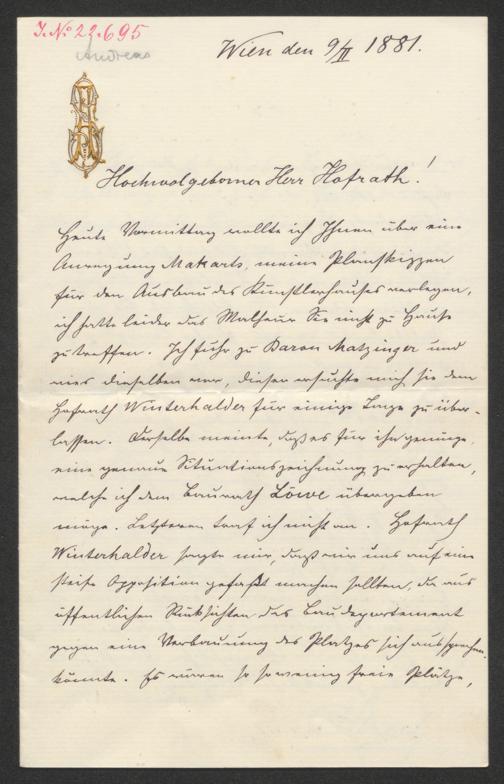 I. No 22.695
Andreas
Wien den 9/II 1881.
Hochwolgeborner Herr Hofrath!
Heute Vormittag wollte ich Ihnen über eine
Anregung Makarts, meine Planskizzen
für den Ausbau des Künstlerhauses vorlegen,
ich hatte leider das Malheur Sie nicht zu Hause
zu treffen. Ich fuhr zu Baron Matzinger und
wies dieselben vor, dieser ersuchte mich, sie dem
Hofrath Winterhalder für einige Tage zu über-
lassen. Derselbe meinte, daß es für ihn genüge,
eine genaue Situationszeichnung zu erhalten,
welche ich dem Baurath Löwe übergeben
möge. Letzteren traf ich nicht an. Hofrath
Winterhalder sagte mir, daß wir uns auf eine
steife Opposition gefaßt machen sollten, da aus
öffentlichen Rücksichten das Baudepartement
gegen eine Verbauung des Platzes sich aussprechen
könnte. Es wären so so wenig freie Plätze,